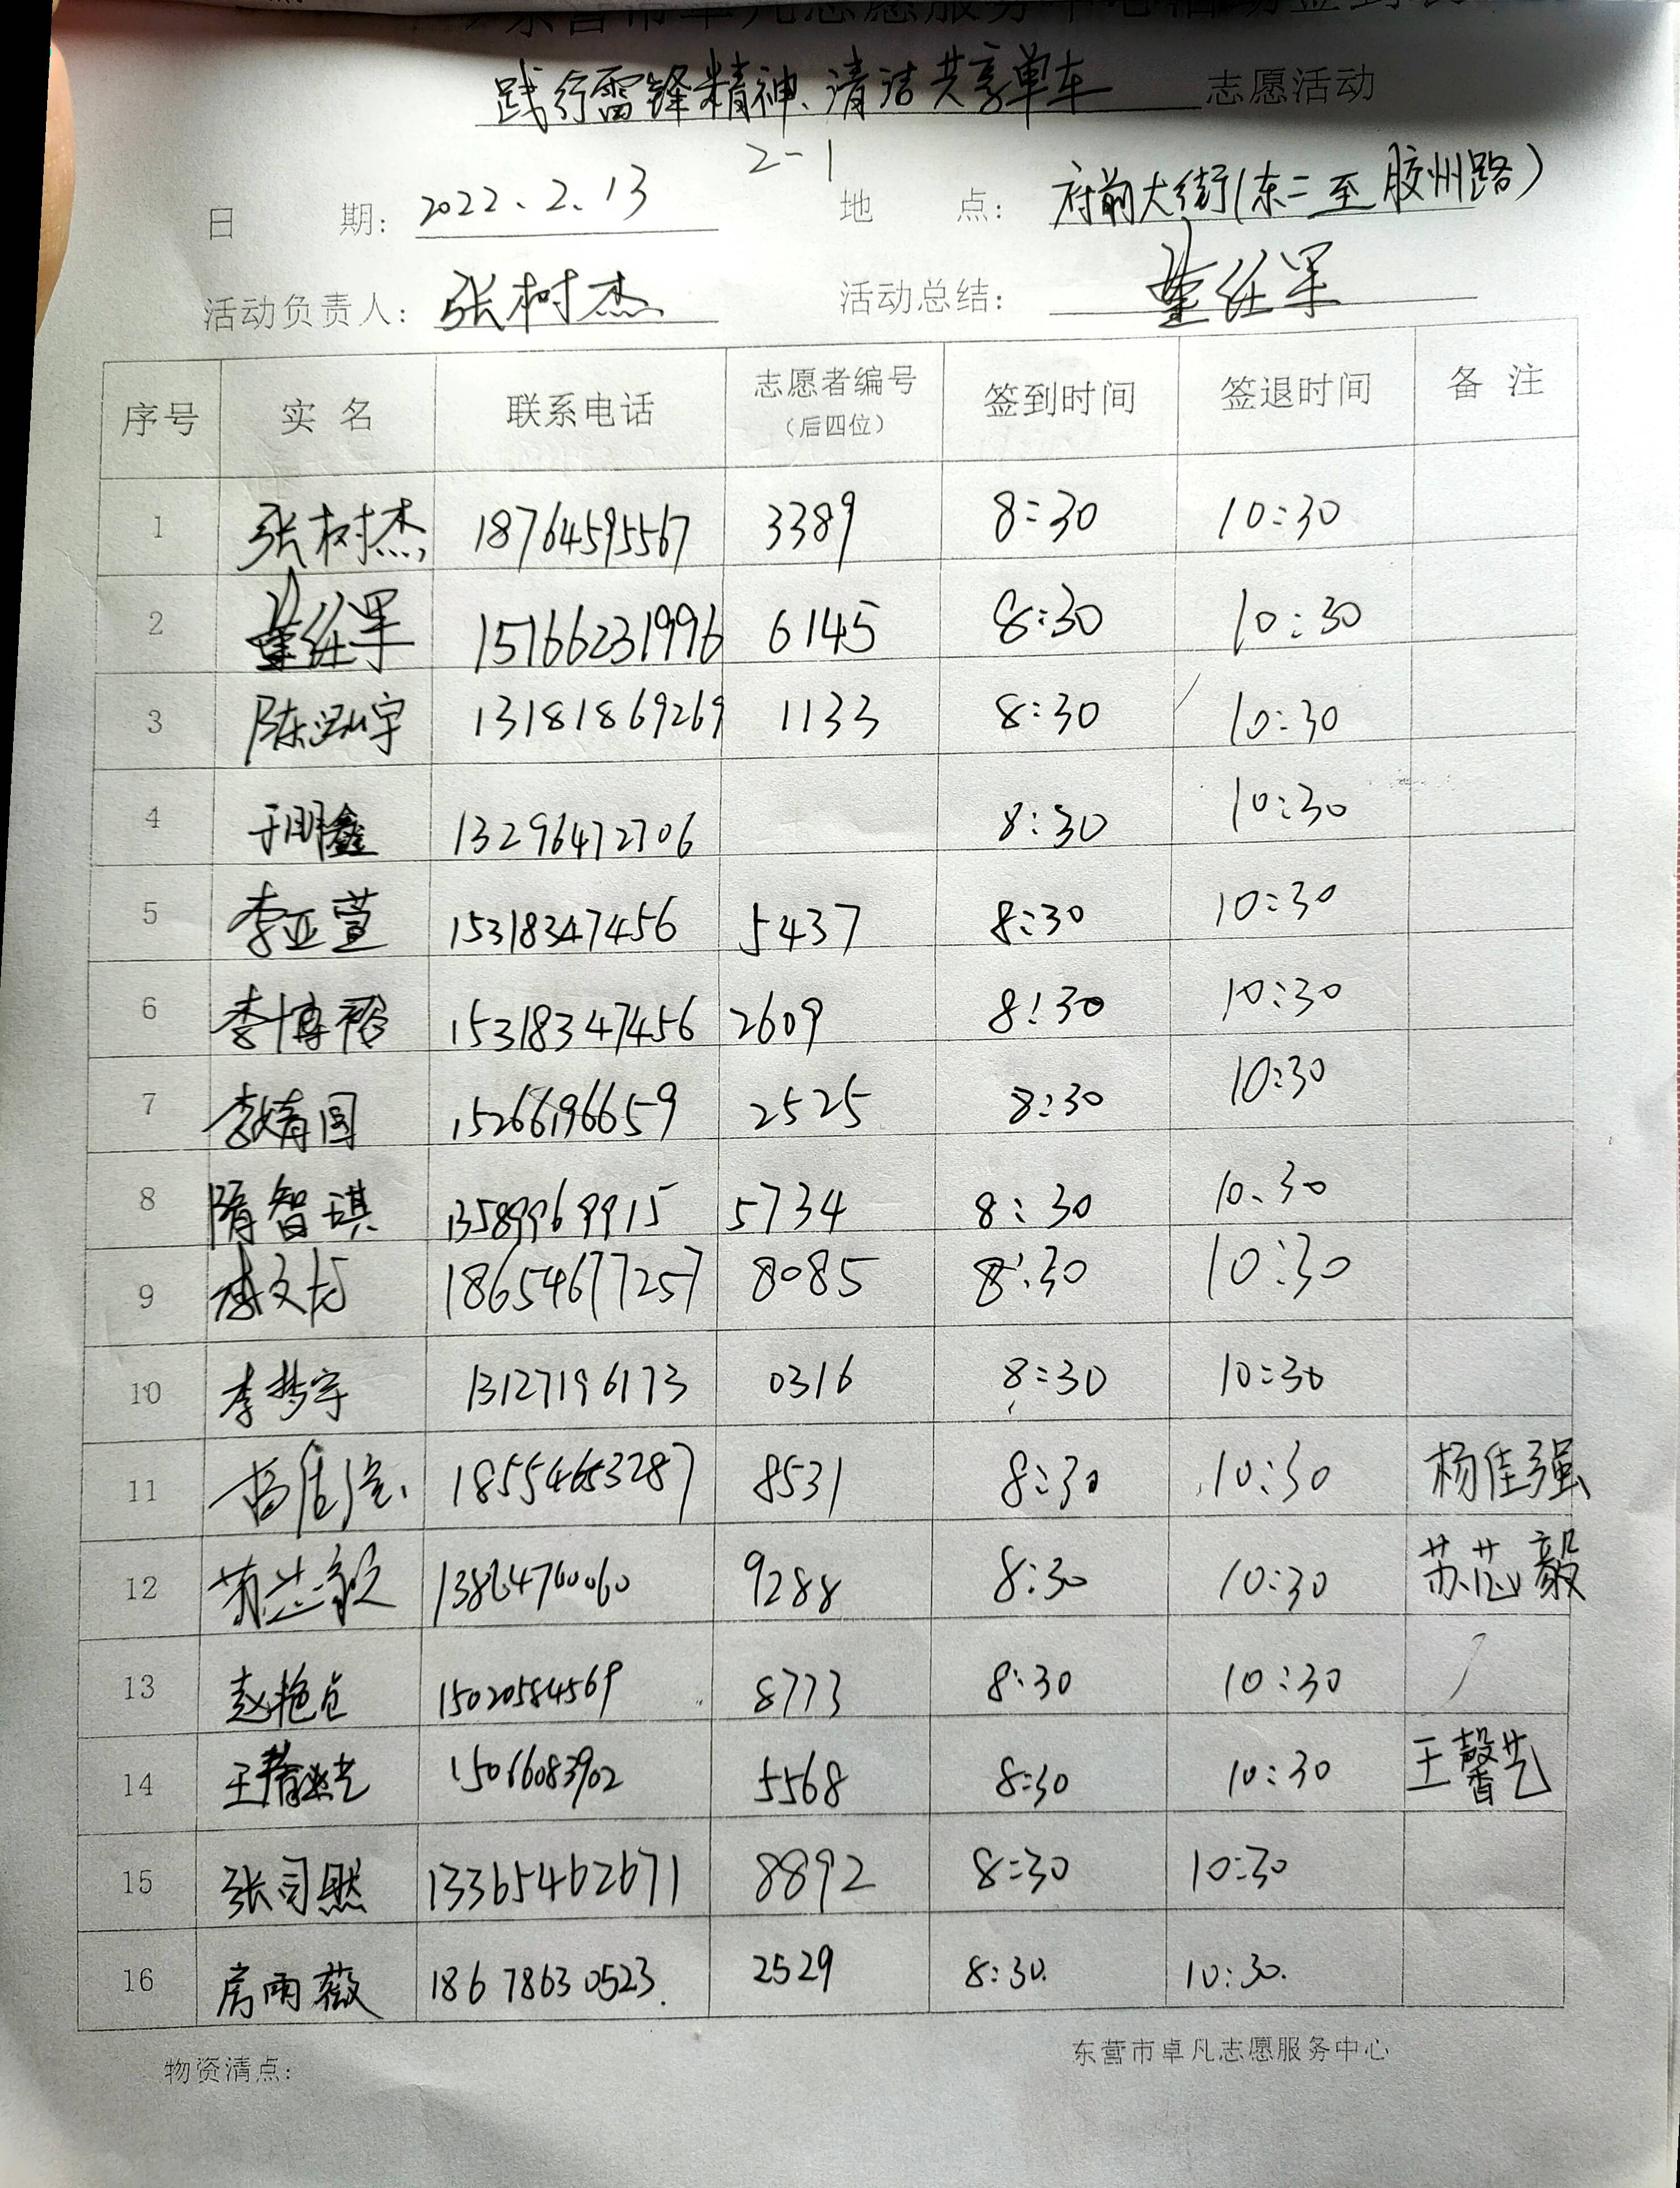 东营市卓凡志愿服务中心活动签到表
践行雷锋精神、清洁共享单车 志愿活动
2-1
日 期: 2022.2.13 地 点: 府前大街(东二至胶州路)
活动负责人: 张树杰 活动总结: 董红军
序号 实名 联系电话 志愿者编号(后四位) 签到时间 签退时间 备注
1 张树杰 18764595567 3389 8:30 10:30
2 董红军 15166231996 6145 8:30 10:30
3 陈泓宇 13181869269 1133 8:30 10:30
4 于明鑫 13296472706 8:30 10:30
5 李亚萱 15318347456 5437 8:30 10:30
6 李博裕 15318347456 2609 8:30 10:30
7 李婧国 15266196659 2525 8:30 10:30
8 隋智琪 13589969915 5734 8:30 10.30
9 李文 18654677257 8085 8:30 10:30
10 李梦宇 13127196173 0316 8:30 10:30
11 杨佳强 18554653287 8531 8:30 10:30 杨佳强
12 苏芯毅 13864760060 9288 8:30 10:30 苏芯毅
13 赵艳 15020584569 8773 8:30 10:30
14 王馨艺 15066083902 5568 8:30 10:30 王馨艺
15 张司然 13365462671 8892 8:30 10:30
16 房雨薇 18678630523. 2529 8:30. 10:30.
物资清点: 东营市卓凡志愿服务中心